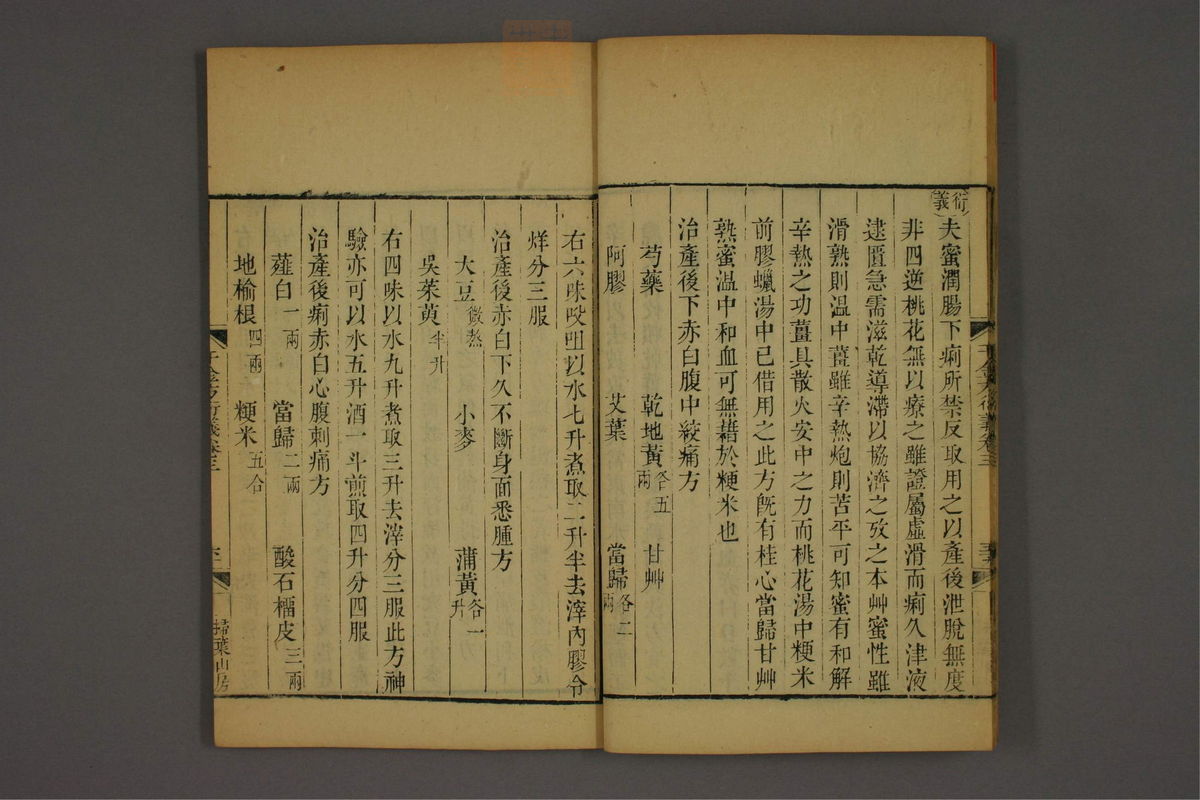 衍義
夫蜜潤腸下痢所禁反取用之以產後泄脫無度
非四逆桃花無以療之雖證屬虛滑而痢久津液
逮匱急需滋乾導滯以協濟之攷之本艸蜜性雖
滑熟則温中薑雖辛熱炮則苦平可知蜜有和解
辛熱之功薑具散火安中之力而桃花湯中粳米
前膠蠟湯中已借用之此方旣有桂心當歸甘艸
熟蜜温中和血可無藉於粳米也
治產後下赤白腹中絞痛方
芍藥 乾地黃各五兩 甘艸
阿膠 艾葉 當歸各二兩
右六味㕮咀以水七升煮取二升半去滓內膠令
烊分三服
治產後赤白下久不斷身面悉腫方
大豆微熬 小麥 蒲黃各一升
吳茱萸半升
右四味以水九升煮取三升去滓分三服此方神
驗亦可以水五升酒一斗煎取四升分四服
治產後痢赤白心腹刺痛方
薤白一兩 當歸二兩 酸石榴皮三兩
地榆根四兩 粳米五合
掃葉山房